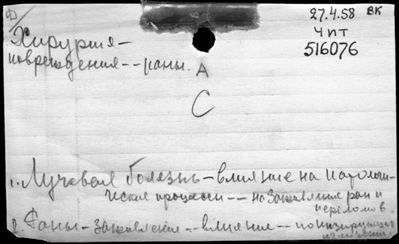 Ф
27.4.58 ВК
Хирургия-
чит
516076
повреждения--раны.
А
С
1. Лучевая болезнь-влияние на патологи-
ческие процессы--на заживление ран и
переломов.
2. Раны-заживление--влияние--ионизирующих
излучений